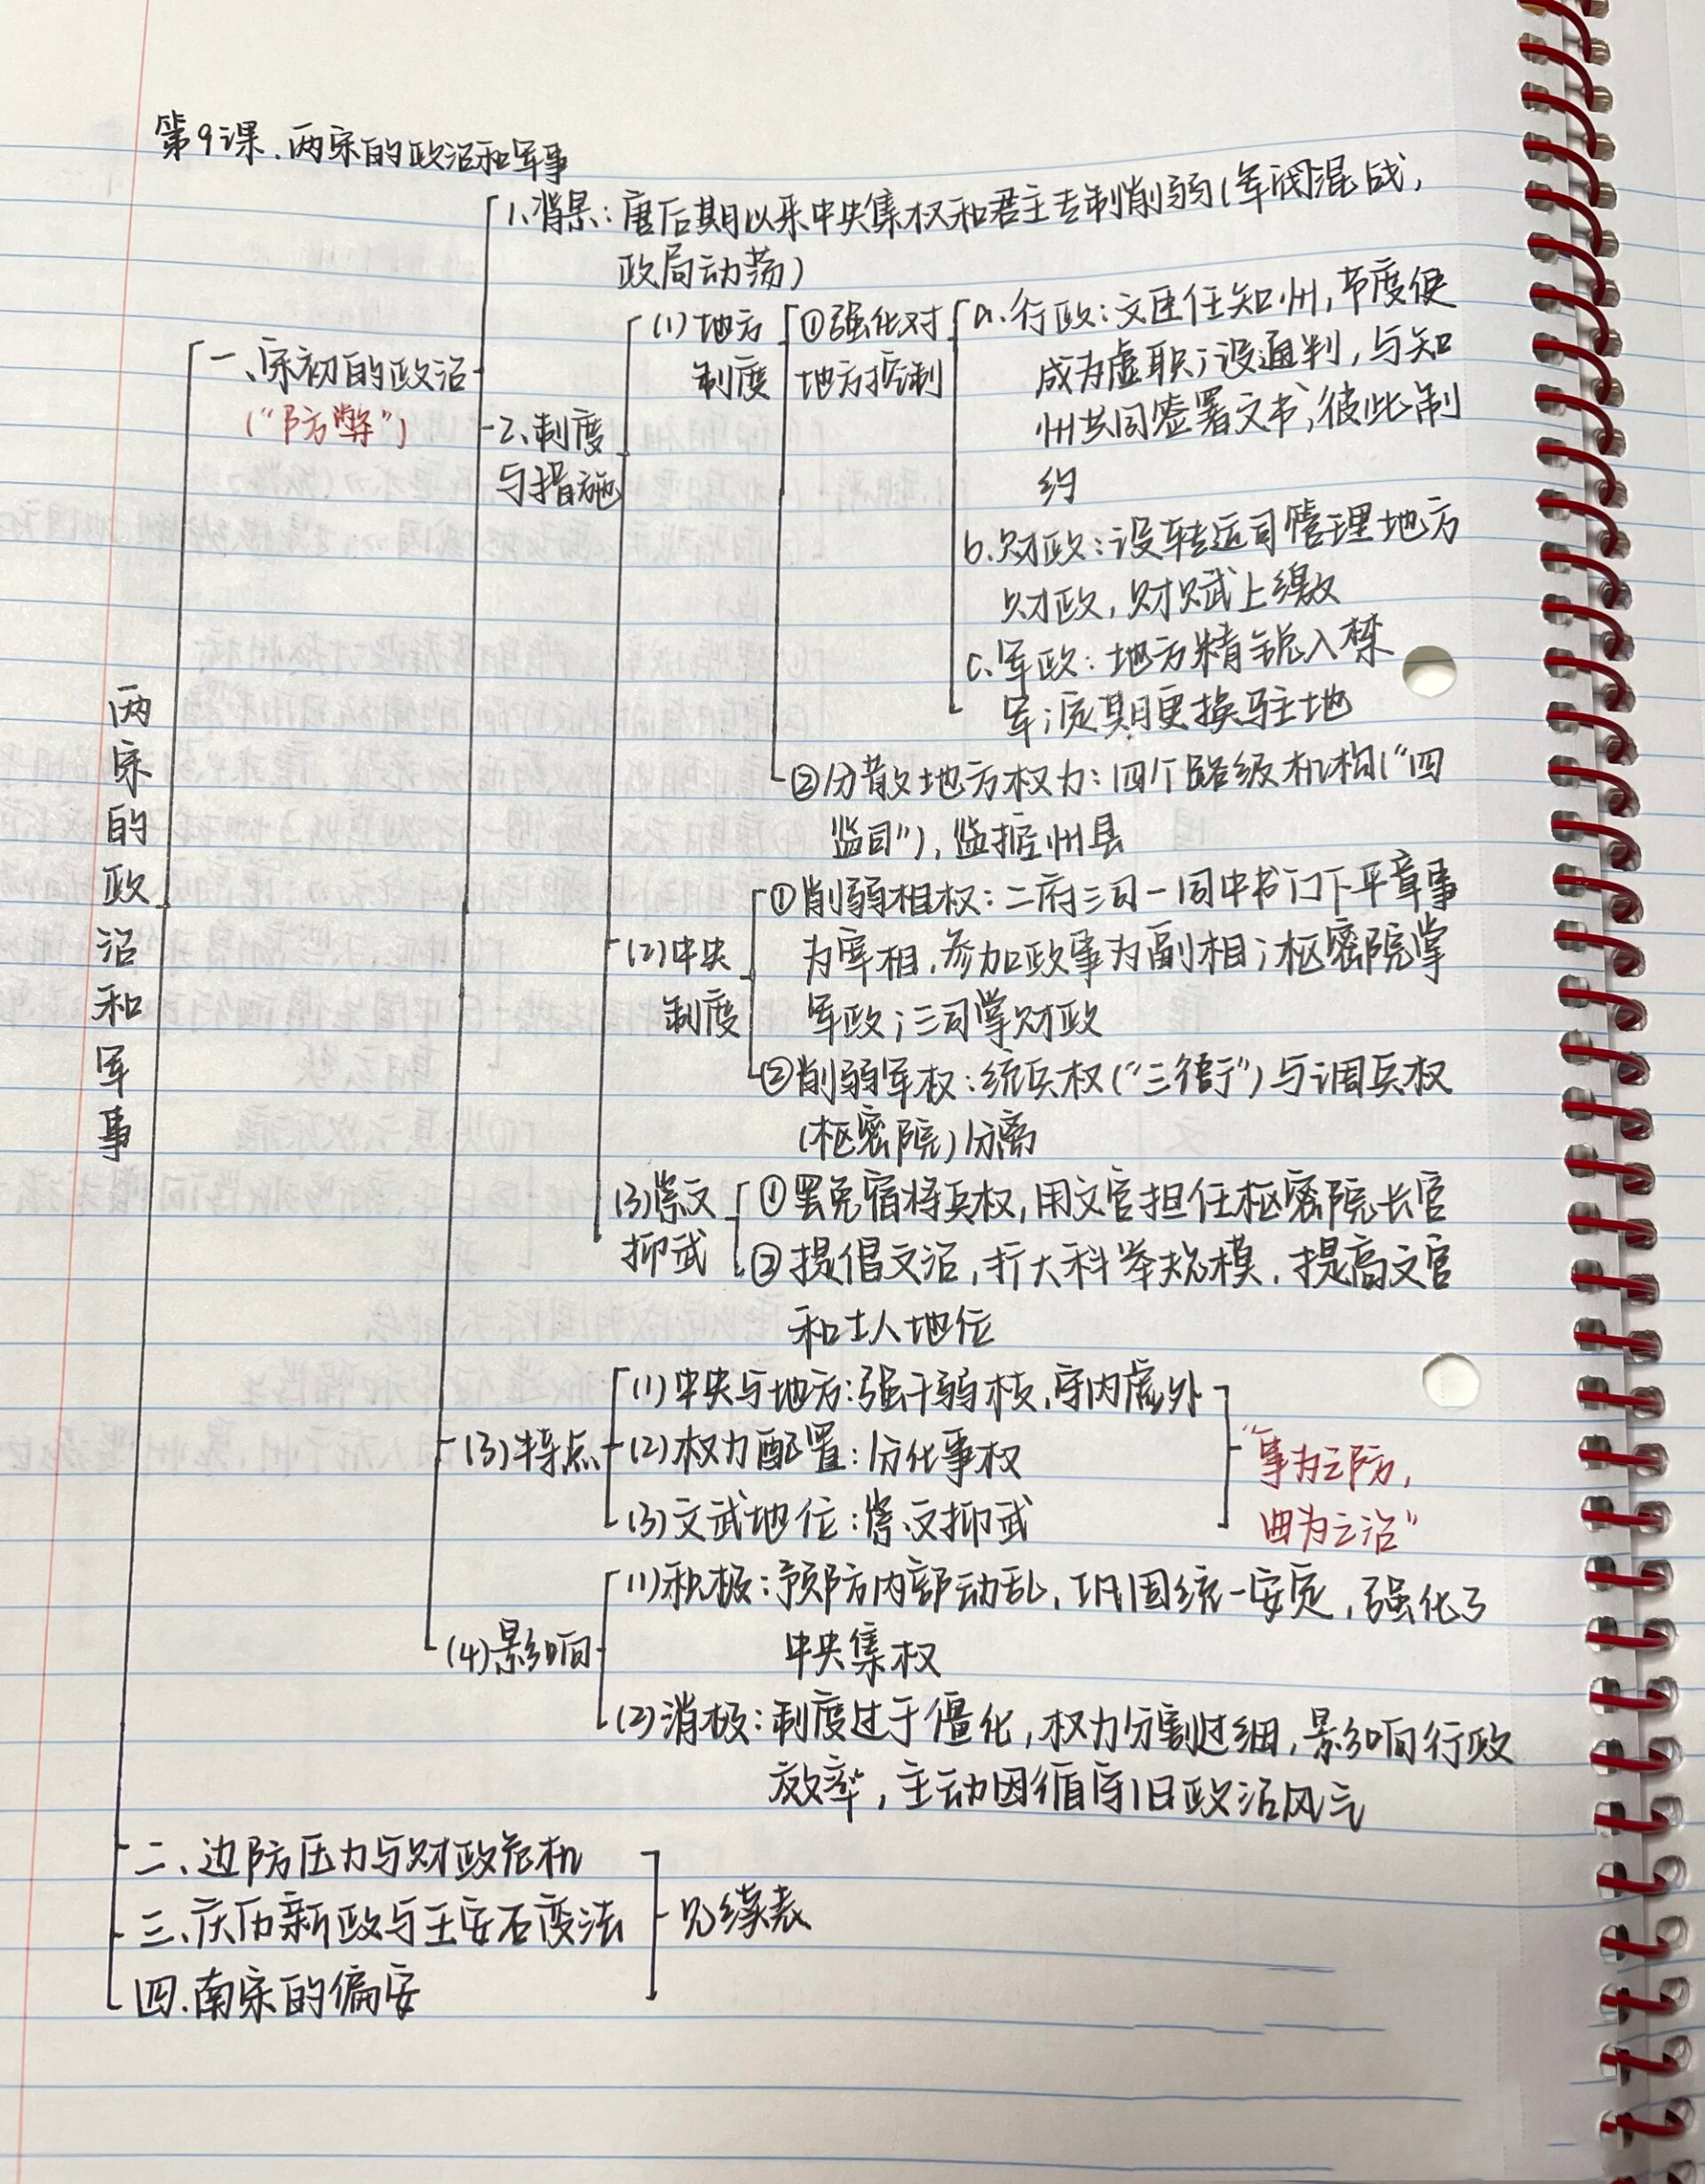 第9课.两宋的政治和军事
1.背景：唐后期以来中央集权和君主专制削弱(军阀混战，
政局动荡)
一、宋初的政治
("防弊")
2.制度
与措施
(1)地方
制度
①强化对
地方控制
a.行政：文臣任知州，节度使
成为虚职；设通判，与知
州共同签署文书，彼此制
约
b.财政：设转运司管理地方
财政，财赋上缴
c.军政：地方精锐入禁
军；定期更换驻地
②分散地方权力：四个路级机构("四
监司")，监控州县
(2)中央
制度
①削弱相权：二府三司-同中书门下平章事
为宰相，参加政事为副相；枢密院掌
军政；三司掌财政
②削弱军权：统兵权("三衙")与调兵权
(枢密院)分离
(3)崇文
抑武
①罢免宿将兵权，用文官担任枢密院长官
②提倡文治，扩大科举规模，提高文官
和士人地位
(3)特点
(1)中央与地方：强干弱枝，守内虚外
(2)权力配置：分化事权
(3)文武地位：崇文抑武
"事为之防，
曲为之治"
(4)影响
(1)积极：预防内部动乱，巩固统一安定，强化了
中央集权
(2)消极：制度过于僵化，权力分割过细，影响行政
效率，主动因循守旧政治风气
二、边防压力与财政危机
三、庆历新政与王安石变法
四.南宋的偏安
见续表
两宋的政治和军事